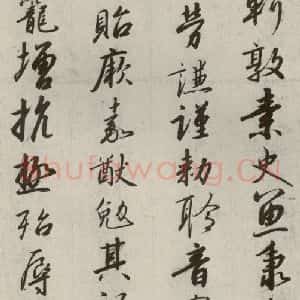 軻敦素史魚秉
勞謙謹敕聆音
貽厥嘉猷勉其祗
寵增抗極殆辱
shufawang.cn